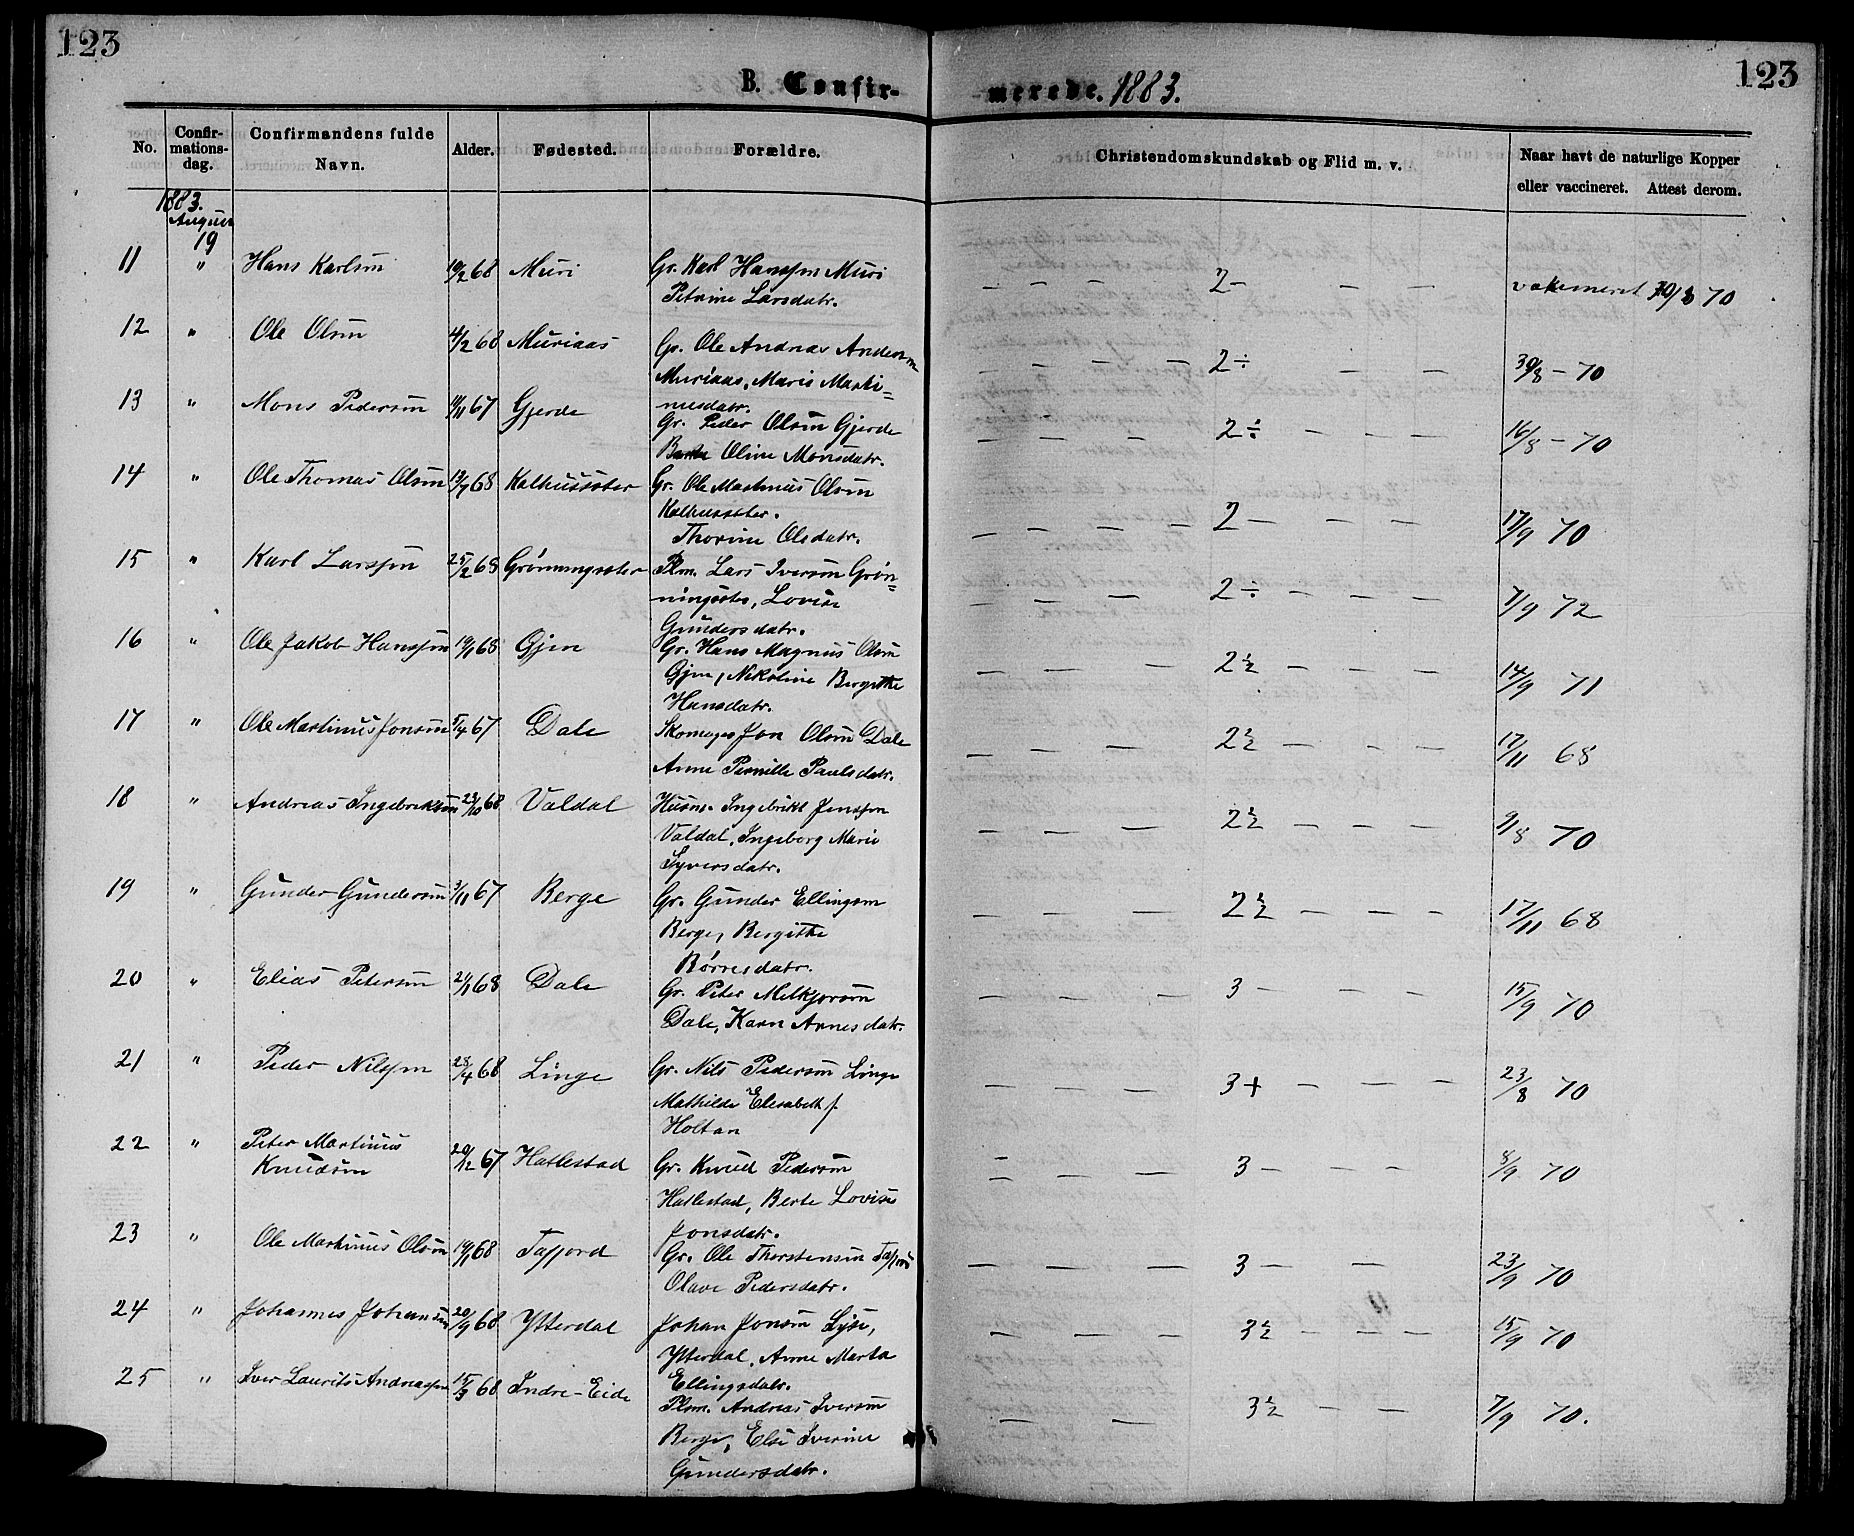 123
123
B. Confir- merede. 1883.
No.
Confir-
mations-
dag.
Confirmandens fulde
Navn.
Alder.
Fødested.
Forældre.
Christendomskundskab og Flid m. v.
Naar havt de naturlige Kopper
eller vaccineret. Attest derom.
1883.
August
19
11 " Hans Karlsen 68 Muri Gr. Karl Hanssen Muri
Petrine Larsdatr.
— — — — 2- — — 70
12 " Ole Olsen 4/2 68 Muriaas Gr. Ole Andreas Andersen
Muriaas, Maris Marti=
nusdatr.
— — — — 2÷ — — 30/8 - 70
13 " Mons Pedersen 67 Gjerde Gr. Peder Olsen Gjerde
Berte Oline Monsdatr.
— — — 2÷ — — — 16/8 - 70
14 " Ole Thomas Olsen 68 Kalhussæter Gr. Ole Martinus Olsen
Kalhussæter.
Thorine Olsdatr.
— — — — 2- — — 17/9 70
15 " Karl Larssen 25/2 68 Grønningsæter Plm. Lars Iversen Grøn=
ningsæter, Lovise
Gundersdatr.
— — — — 2÷ — — — 7/9 72
16 " Ole Jakob Hanssen 19/1 68 Gjøen Gr. Hans Magnus Olsen
Gjøen, Nikoline Bergitte
Hansdatr.
— — — 2½ — — — 14/9 71
17 " Ole Martinus Jonsen 5/4 67 Dale Skomager Jon Olsen Dale
Anne Pernille Paulsdatr.
— — — 2½ — — — 17/11 68
18 " Andreas Ingebrektsen 23/10 68 Valdal Husm. Ingebrikt Jenssen
Valdal, Ingeborg Marie
Syversdatr.
— — — 2½ — — — 9/8 70
19 " Gunder Gundersen 3/11 67 Berge Gr. Gunder Ellingsen
Berge, Bergitte
Børresdatr.
— — — 2½ — — — 17/11 68
20 " Elias Petersen 68 Dale Gr. Peter Melkjorsen
Dale, Karn Arnesdatr.
— — — 3- — — 15/9 70
21 " Peder Nilssen 28/4 68 Linge Gr. Nils Pedersen Linge
Mathilde Elesabeth f.
Holtan
— — — 3+ — — — 23/8 70
22 " Peter Martinus
Knudsen 20/12 67 Hatlestad Gr. Knud Pedersen
Hatlestad, Berte Lovise
Jonsdatr.
— — — 3- — — 8/9 70
23 " Ole Martinus Olsen 19/1 68 Tafjord Gr. Ole Thorstensen Tafjord
Olave Pedersdatr.
— — — — 3- — 23/9 70
24 " Johannes Johansen 20/9 68 Ytterdal Johan Jonsen Lyse,
Ytterdal, Anne Marta
Ellingsdatr.
— — — 3½ — — — 15/9 70
25 " Iver Laurits Andreassen 68 Indre-Eide Plm. Andreas Iversen
Berge, Else Iverine
Gundersdatr.
— — — 3½ — — 7/9 70.